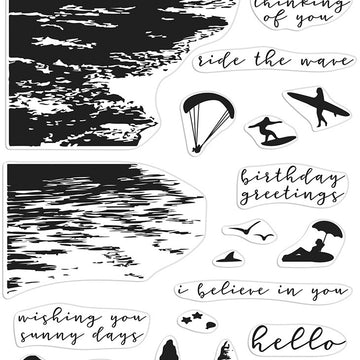 thinking
of you
ride the wave
birthday
greetings
i believe in you
wishing you
sunny days
hello